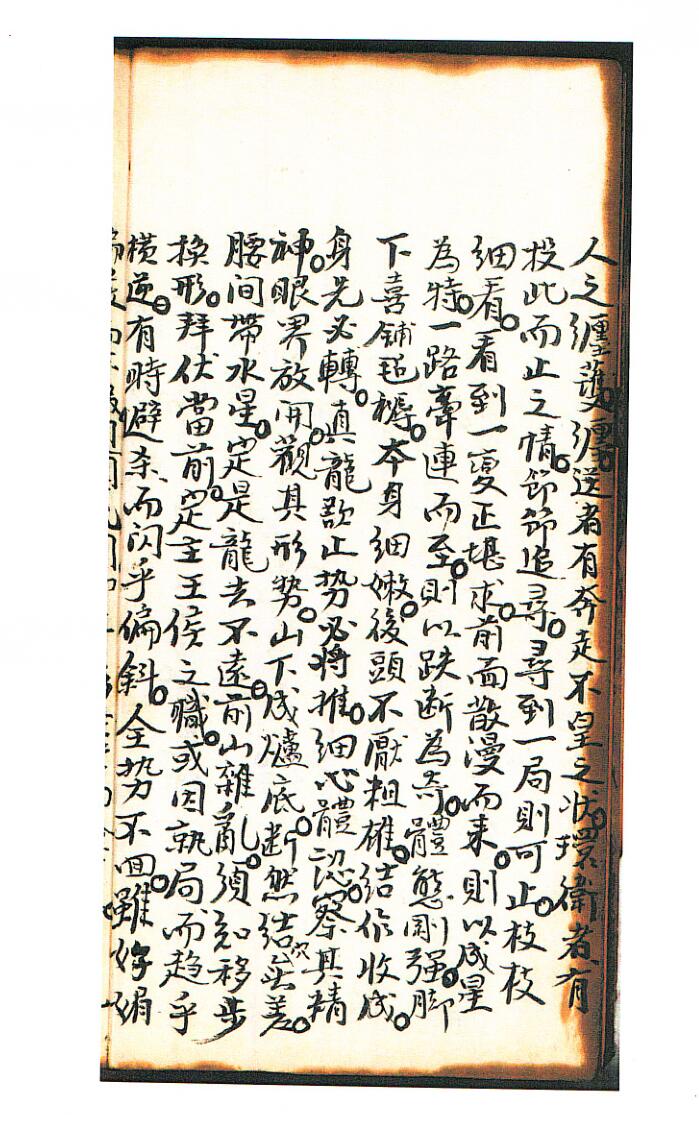 人之纏護。纏送者有奔走不皇之狀。環衛者。有
投此而止之情。節節追尋。尋到一局則可止。枝枝
細看。看到一处正堪求。前面散漫而来。則以成星
為特。一路牽連而至。則以跌断為奇。體態剛强。脚
下喜鋪毡褥。本身細嫩。後頭不厭粗雄。結作收成。
身先必轉。真龍欲止勢必將推。細心體認。察其精
神。眼界放開。觀其形勢。山下成爐底。断然結穴無差。
腰間帶水星。定是龍去不遠。前山雜亂。須知移步
換形。拜伏當前。定主王侯之職。或因執局而趋乎
橫逆。有時避杀而閃乎偏斜。全勢不回。雖